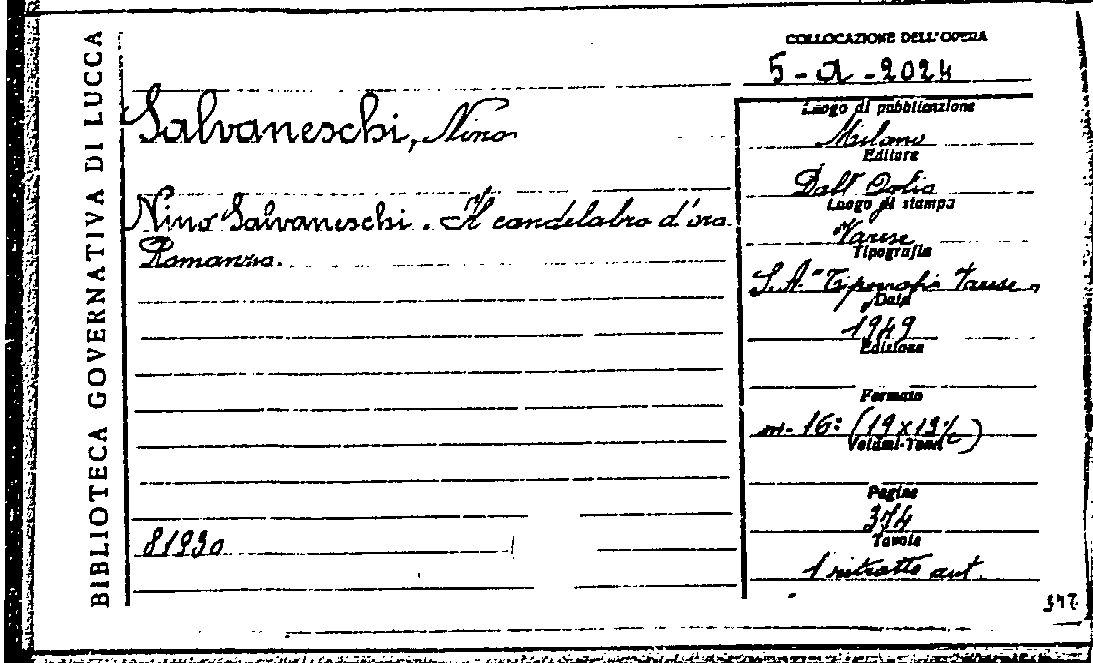 BIBLIOTECA GOVERNATIVA DI LUCCA
COLLOCAZIONE DELL'OPERA
5-a-2024
Salvaneschi, Nino
Nino Salvaneschi. Il candelabro d'oro.
Romanzo.
81930
Luogo di pubblicazione
Milano
Editore
Dall'Oglio
Luogo di stampa
Varese
Tipografia
S.A. "Tipografia Varese"
Data
1949
Edizione
Formato
in-16: (19 x
Volumi-Tomi
Pagine
374
Tavole
1 ritratto aut.